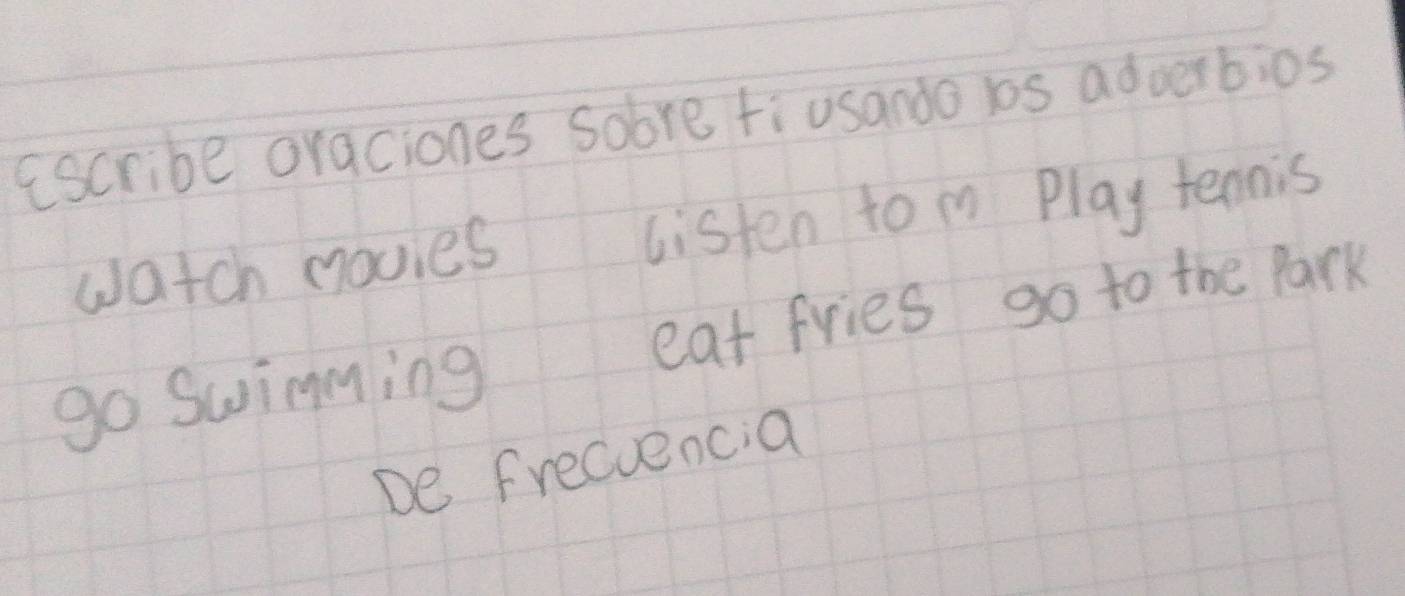 Escribe oraciones sobre ti usando los adverbios
watch movies listen to m Play tennis
go Swimming eat fries go to the Park
De frecuencia